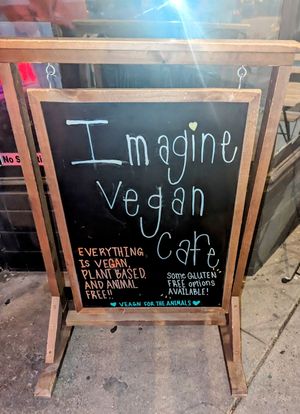 Imagine
vegan
Cafe
EVERYTHING
IS VEGAN,
PLANT BASED,
AND ANIMAL
FREE!!
Some GLUTEN
FREE options
AVAILABLE!
VEAGN FOR THE ANIMALS
No S